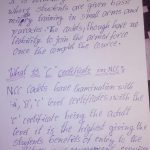 where students are given basic
military training in small arms and
parades. The cadets, though have no
liability to join the armed force
once the complet the course.
What is "C" certificate in NCC?
NCC cadets have examination with
"A", "B", "C" level certificates with the
'C' certificate being the adult
level it is the highest giving the
students benefits of entry to the